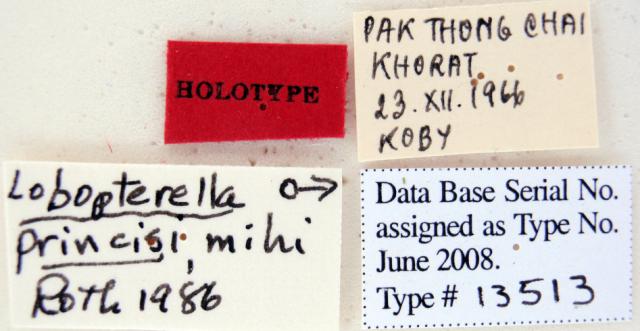 HOLOTYPE
PAK THONG CHAI
KHORAT
23.XII.1966
KOBY
Lobopterella ♂
princisi, mihi
Roth 1986
Data Base Serial No.
assigned as Type No.
June 2008.
Type # 13513